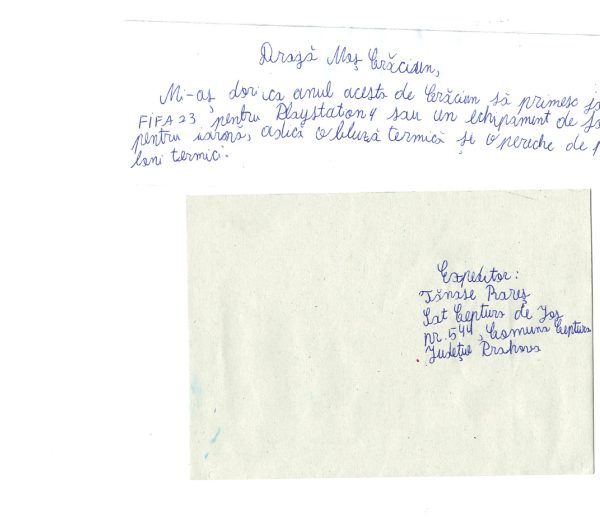 Dragă Moș Crăciun,
Mi-aș dori ca anul acesta de Crăciun să primesc
FIFA 23 pentru Playstation 4 sau un echipament de
pentru iarnă, adică o bluză termică și o pereche de
loni termici.
Expeditor:
Tănase Rareș
Sat Ceptura de Jos
nr. 544, Comuna Ceptura
Județul Prahova